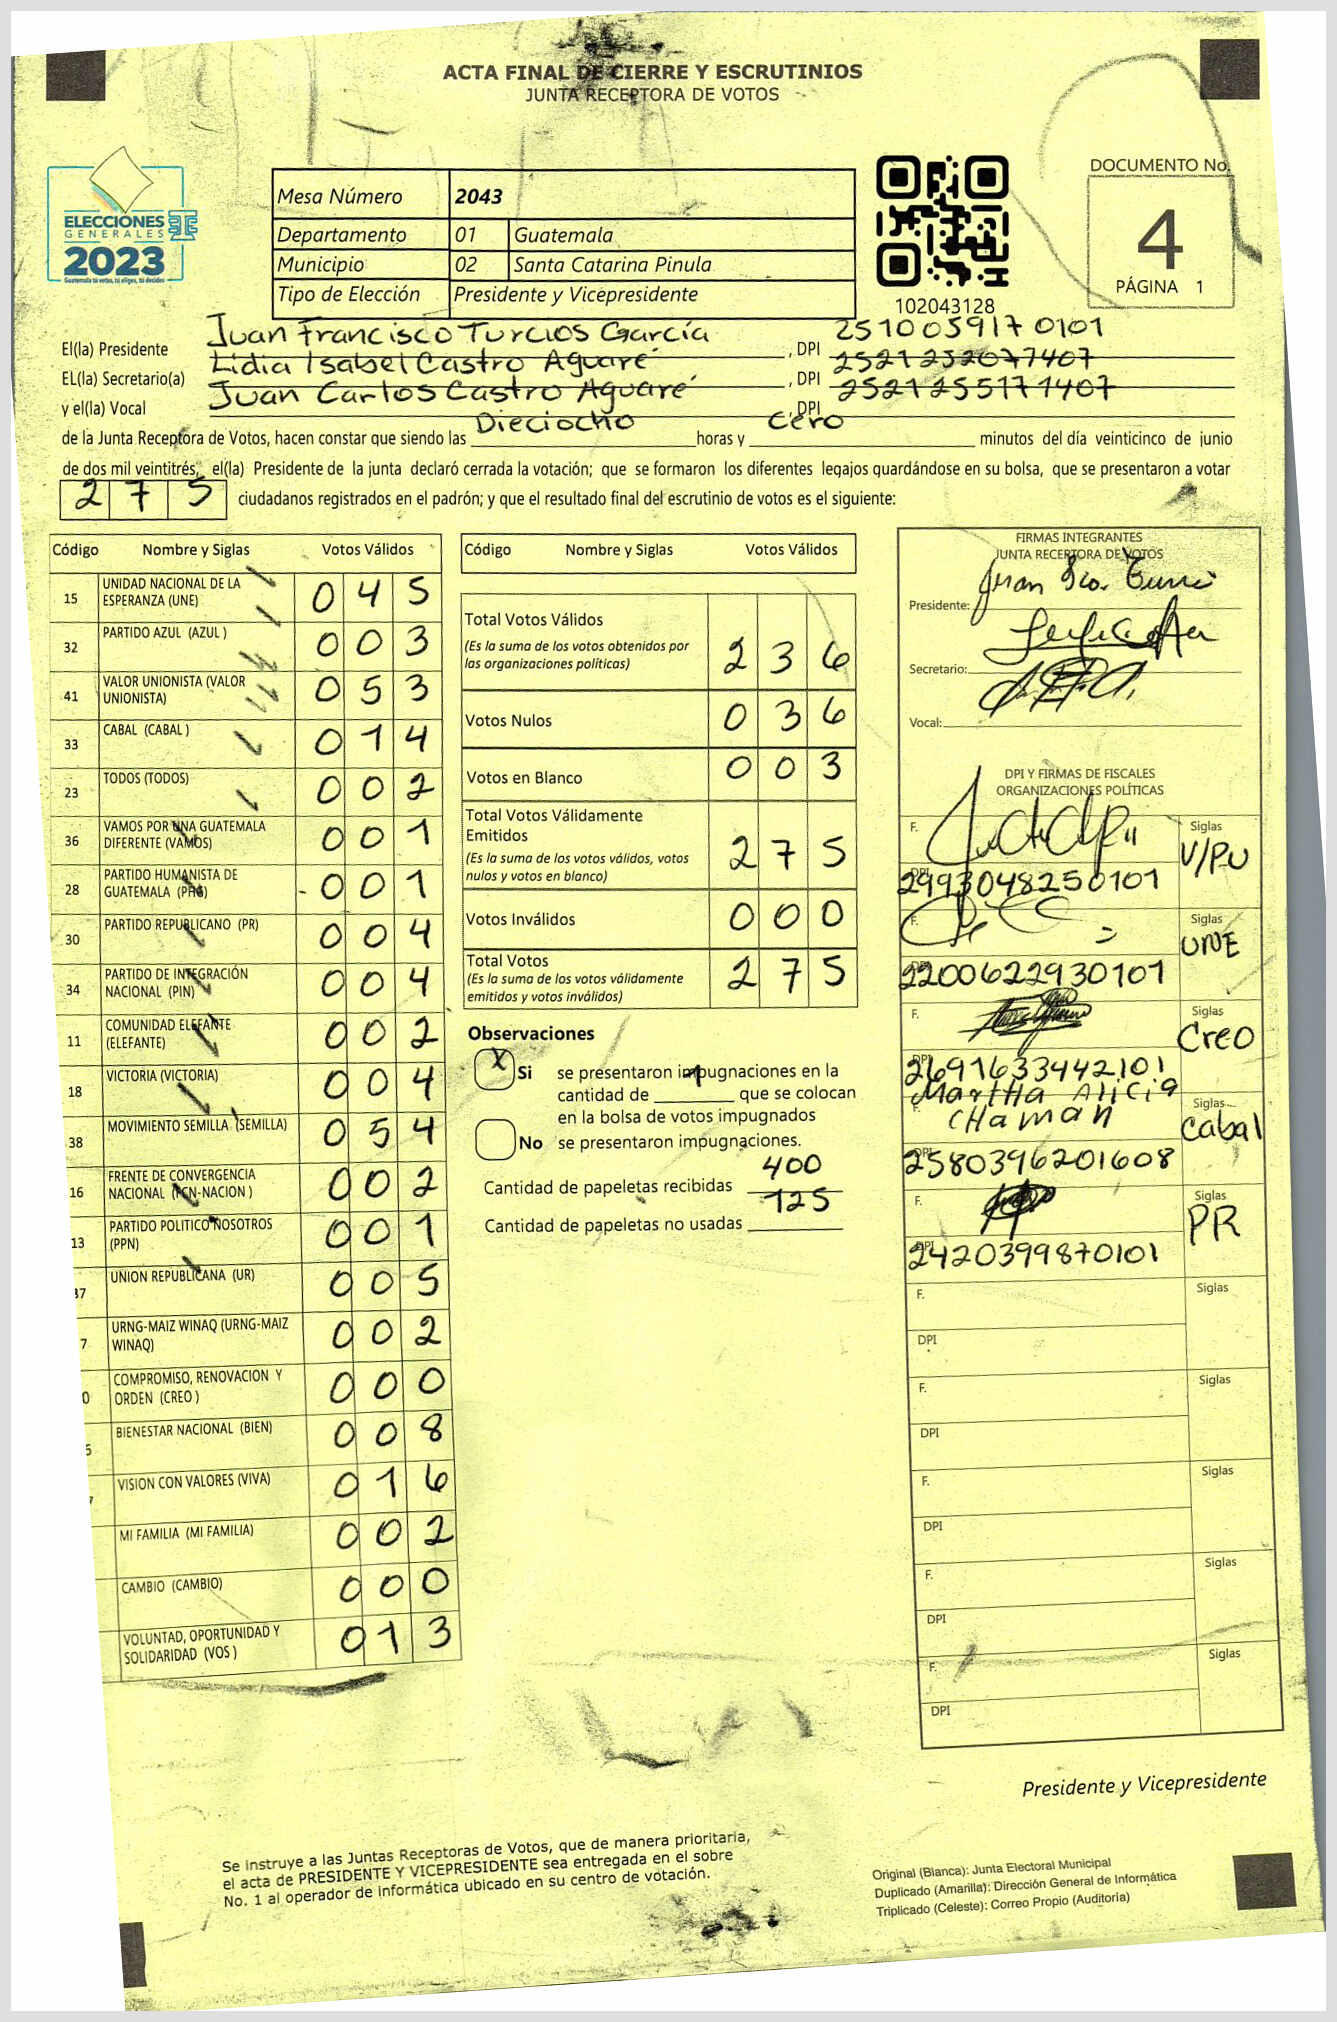 ACTA FINAL DE CIERRE Y ESCRUTINIOS
JUNTA RECEPTORA DE VOTOS
ELECCIONES
GENERALES
2023
Guatemala tú votas, tú eliges, tú decides
Mesa Número 2043
Departamento 01 Guatemala
Municipio 02 Santa Catarina Pinula
Tipo de Elección Presidente y Vicepresidente
102043128
DOCUMENTO No.
4
PÁGINA 1
El(la) Presidente Juan Francisco Turcios García, DPI 2510059170101
EL(la) Secretario(a) Lidia Isabel Castro Aguaré, DPI 2521252077407
y el(la) Vocal Juan Carlos Castro Aguaré, DPI 2521255171407
de la Junta Receptora de Votos, hacen constar que siendo las Dieciocho horas y Cero minutos del día veinticinco de junio
de dos mil veintitrés, el(la) Presidente de la junta declaró cerrada la votación; que se formaron los diferentes legajos quardándose en su bolsa, que se presentaron a votar
275 ciudadanos registrados en el padrón; y que el resultado final del escrutinio de votos es el siguiente:
Código Nombre y Siglas Votos Válidos
15 UNIDAD NACIONAL DE LA ESPERANZA (UNE) 045
32 PARTIDO AZUL (AZUL ) 003
41 VALOR UNIONISTA (VALOR UNIONISTA) 053
33 CABAL (CABAL ) 014
23 TODOS (TODOS) 002
36 VAMOS POR UNA GUATEMALA DIFERENTE (VAMOS) 001
28 PARTIDO HUMANISTA DE GUATEMALA (PHG) 001
30 PARTIDO REPUBLICANO (PR) 004
34 PARTIDO DE INTEGRACIÓN NACIONAL (PIN) 004
11 COMUNIDAD ELEFANTE (ELEFANTE) 002
18 VICTORIA (VICTORIA) 004
38 MOVIMIENTO SEMILLA (SEMILLA) 054
16 FRENTE DE CONVERGENCIA NACIONAL (FCN-NACION ) 002
13 PARTIDO POLITICO NOSOTROS (PPN) 001
37 UNION REPUBLICANA (UR) 005
7 URNG-MAIZ WINAQ (URNG-MAIZ WINAQ) 002
0 COMPROMISO, RENOVACION Y ORDEN (CREO ) 000
5 BIENESTAR NACIONAL (BIEN) 008
VISION CON VALORES (VIVA) 016
MI FAMILIA (MI FAMILIA) 002
CAMBIO (CAMBIO) 000
VOLUNTAD, OPORTUNIDAD Y SOLIDARIDAD (VOS ) 013
Código Nombre y Siglas Votos Válidos
Total Votos Válidos 236
(Es la suma de los votos obtenidos por las organizaciones políticas)
Votos Nulos 036
Votos en Blanco 003
Total Votos Válidamente Emitidos 275
(Es la suma de los votos válidos, votos nulos y votos en blanco)
Votos Inválidos 000
Total Votos 275
(Es la suma de los votos válidamente emitidos y votos inválidos)
Observaciones
X Si se presentaron impugnaciones en la
cantidad de 1 que se colocan
en la bolsa de votos impugnados
No se presentaron impugnaciones.
Cantidad de papeletas recibidas 400
Cantidad de papeletas no usadas 125
FIRMAS INTEGRANTES
JUNTA RECERTORA DE VOTOS
Presidente:
Secretario:
Vocal:
DPI Y FIRMAS DE FISCALES
ORGANIZACIONES POLÍTICAS
F. Siglas V/PU
DPI 2993048250101
F. Siglas UNE
DPI 2200622930101
F. Siglas Creo
DPI 2691633442101
F. Martha Alicia Chaman Siglas Cabal
DPI 2580396201608
F. Siglas PR
DPI 2420399870101
F. Siglas
DPI
F. Siglas
DPI
F. Siglas
DPI
F. Siglas
DPI
F. Siglas
DPI
Presidente y Vicepresidente
Se instruye a las Juntas Receptoras de Votos, que de manera prioritaria,
el acta de PRESIDENTE Y VICEPRESIDENTE sea entregada en el sobre
No. 1 al operador de informática ubicado en su centro de votación.
Original (Blanca): Junta Electoral Municipal
Duplicado (Amarilla): Dirección General de Informática
Triplicado (Celeste): Correo Propio (Auditoría)